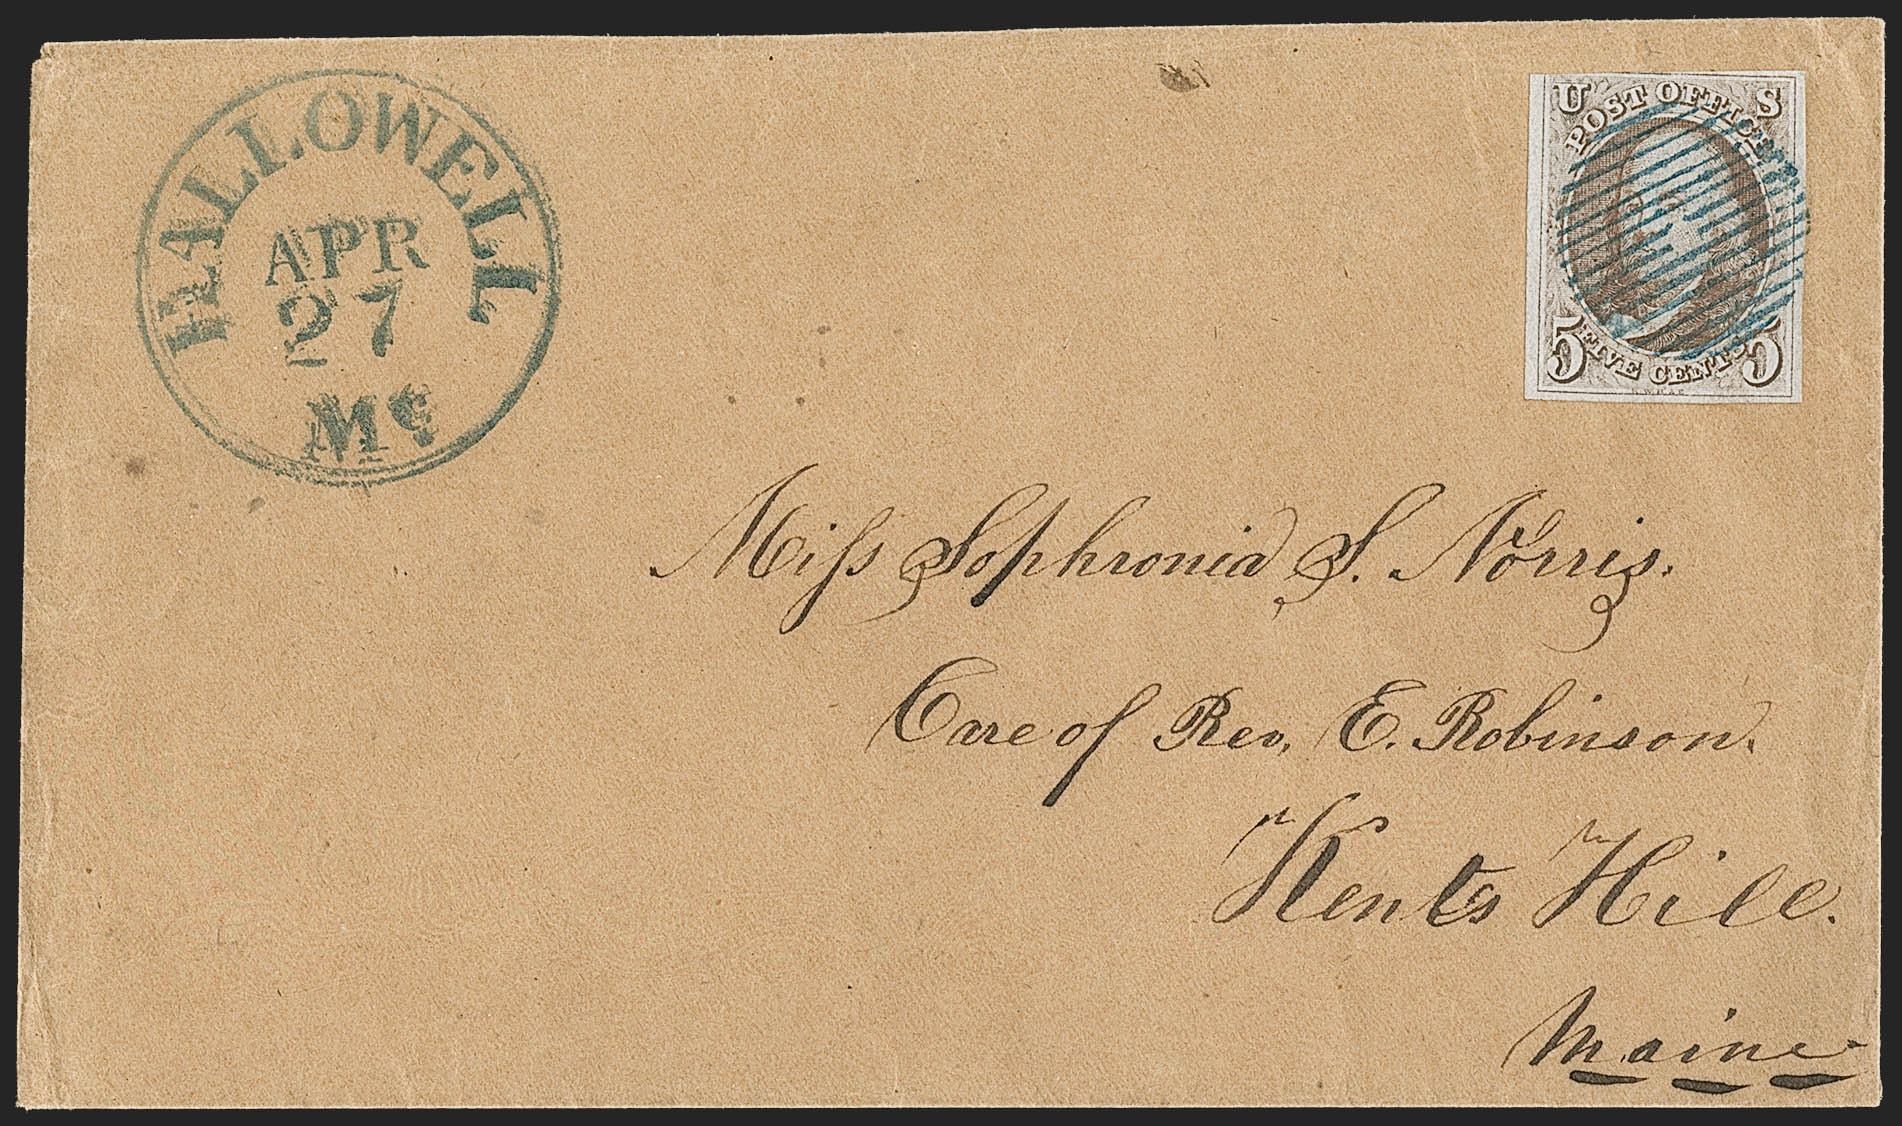 HALLOWELL
APR
27
Me
U S
POST OFFICE
5 FIVE CENTS 5
Miſs Sophronia S. Norris.
Care of Rev. E. Robinson.
Kents Hill.
Maine